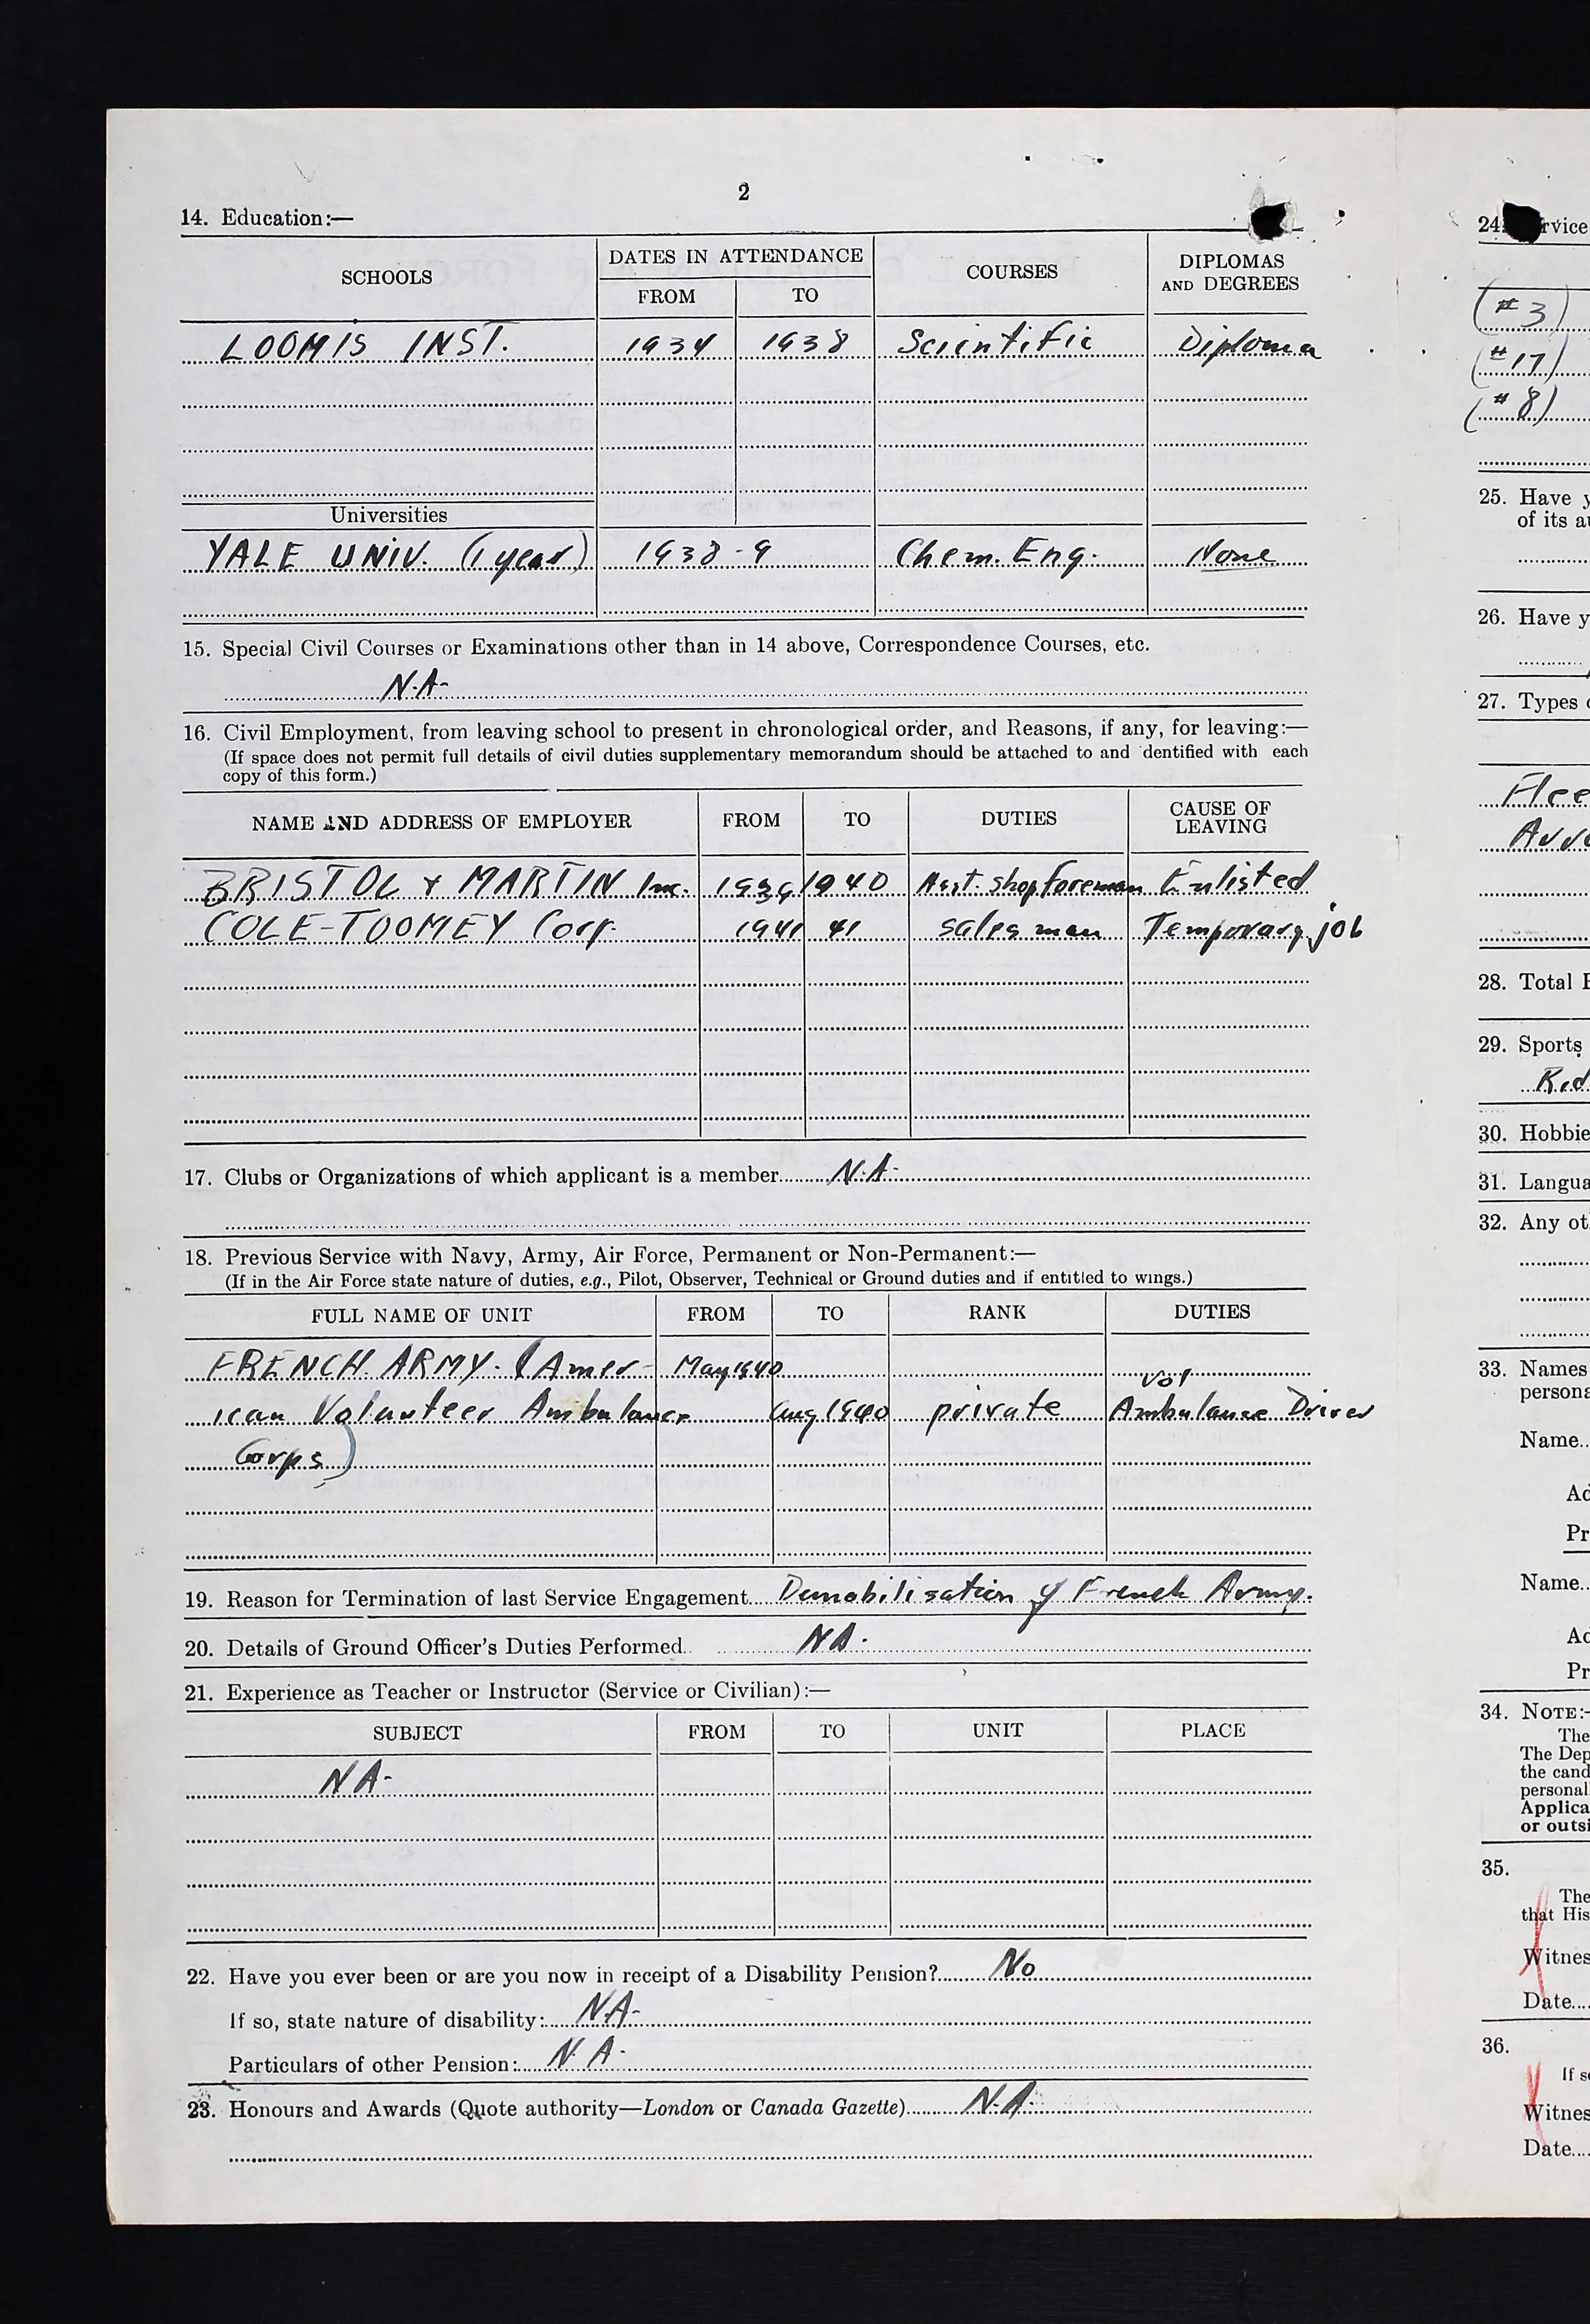 2
14. Education:—
SCHOOLS DATES IN ATTENDANCE COURSES DIPLOMAS AND DEGREES
FROM TO
LOOMIS INST. 1934 1938 Scientific Diploma
Universities
YALE UNIV. (1 year) 1938-9 Chem. Eng. None
15. Special Civil Courses or Examinations other than in 14 above, Correspondence Courses, etc.
N.A.
16. Civil Employment, from leaving school to present in chronological order, and Reasons, if any, for leaving:—
(If space does not permit full details of civil duties supplementary memorandum should be attached to and dentified with each
copy of this form.)
NAME AND ADDRESS OF EMPLOYER FROM TO DUTIES CAUSE OF LEAVING
BRISTOL & MARTIN Inc. 1939 1940 Asst. shop foreman Enlisted
COLE-TOOMEY Corp. 1941 41 salesman Temporary job
17. Clubs or Organizations of which applicant is a member N.A.
18. Previous Service with Navy, Army, Air Force, Permanent or Non-Permanent:—
(If in the Air Force state nature of duties, e.g., Pilot, Observer, Technical or Ground duties and if entitled to wings.)
FULL NAME OF UNIT FROM TO RANK DUTIES
FRENCH ARMY. (Amer- May 1940 Vol
ican Volunteer Ambulance Aug 1940 private Ambulance Driver
Corps)
19. Reason for Termination of last Service Engagement Demobilisation of French Army.
20. Details of Ground Officer's Duties Performed NA.
21. Experience as Teacher or Instructor (Service or Civilian):—
SUBJECT FROM TO UNIT PLACE
NA-
22. Have you ever been or are you now in receipt of a Disability Pension? No
If so, state nature of disability: NA-
Particulars of other Pension: N.A.
23. Honours and Awards (Quote authority—London or Canada Gazette) N.A.
24. rvice
(#3)
(#17)
(#8)
25. Have y
of its a
26. Have y
27. Types
Flee
28. Total
29. Sports
Rid
30. Hobbie
31. Langua
32. Any ot
33. Names
persona
Name
Ad
Pr
Name
Ad
Pr
34. NOTE:-
The
The Dep
the cand
personal
Applica
or outsi
35.
The
that His
Witnes
Date
36.
If s
Witnes
Date